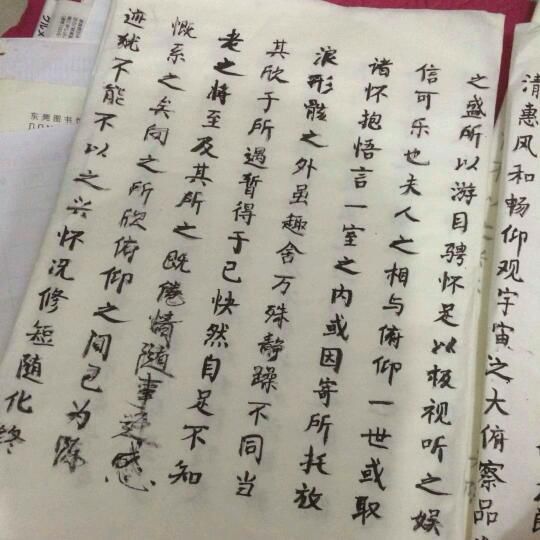 清惠风和畅仰观宇宙之大俯察品
之盛所以游目骋怀足以极视听之娱
信可乐也夫人之相与俯仰一世或取
诸怀抱悟言一室之内或因寄所托放
浪形骸之外虽趣舍万殊静躁不同当
其欣于所遇暂得于己快然自足不知
老之将至及其所之既倦情随事迁感
慨系之矣向之所欣俯仰之间已为陈
迹犹不能不以之兴怀况修短随化终
东莞图书